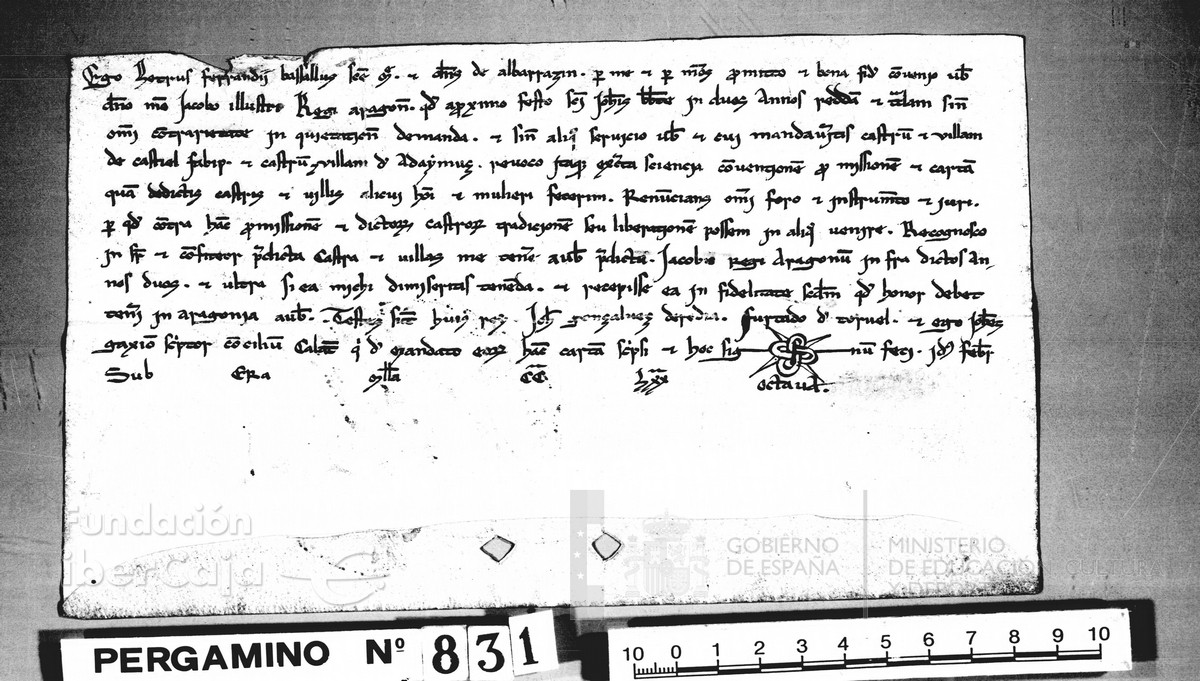 Ego Petrus ferrandi vassallus sce M. & dns de albarrazin. p me & p meos promitto & bona fide convenio vob
dno meo Jacobo illustri Regi aragon. qd a proximo festo sci Johis bbte in duos Annos reddam & tradam sine
omi contrarietate in quietacione demanda. & sine aliq servicio vob & cui mandavitis castru & villam
de castiel fabip. & castru & villam d Adaymuz. revoco sciencia convencione promissione & carta
qua dedictis castris & villis alicui hoi & mulieri fecerim. Renuncians omi foro & instrumto & juri.
p qd contra hac promissione & dictorum castrorum tradicione seu liberacione possem in aliq venire. Recognosco
& confiteor predicta castra & villas me tenere a vob predicto Jacobo regi Aragonum infra dictos an-
nos duos. & ultra si ea michi dimiseritis tenenda. & recepisse ea in fidelitate scdm qd honor debet
teneri in aragonia a vob. Testes sunt huius rei. Joh gonzalvez deredia. furtado d toruel. & ego Johes
scriptor concilium q d mandato eorum hac carta scripsi & hoc sig num feci. febr
Sub ERA Mlla CC Lxx octava.
Fundación
iberCaja
GOBIERNO
DE ESPAÑA
MINISTERIO
DE EDUCACIÓN, CULTURA
Y DEPORTE
PERGAMINO Nº 831
10 0 1 2 3 4 5 6 7 8 9 10